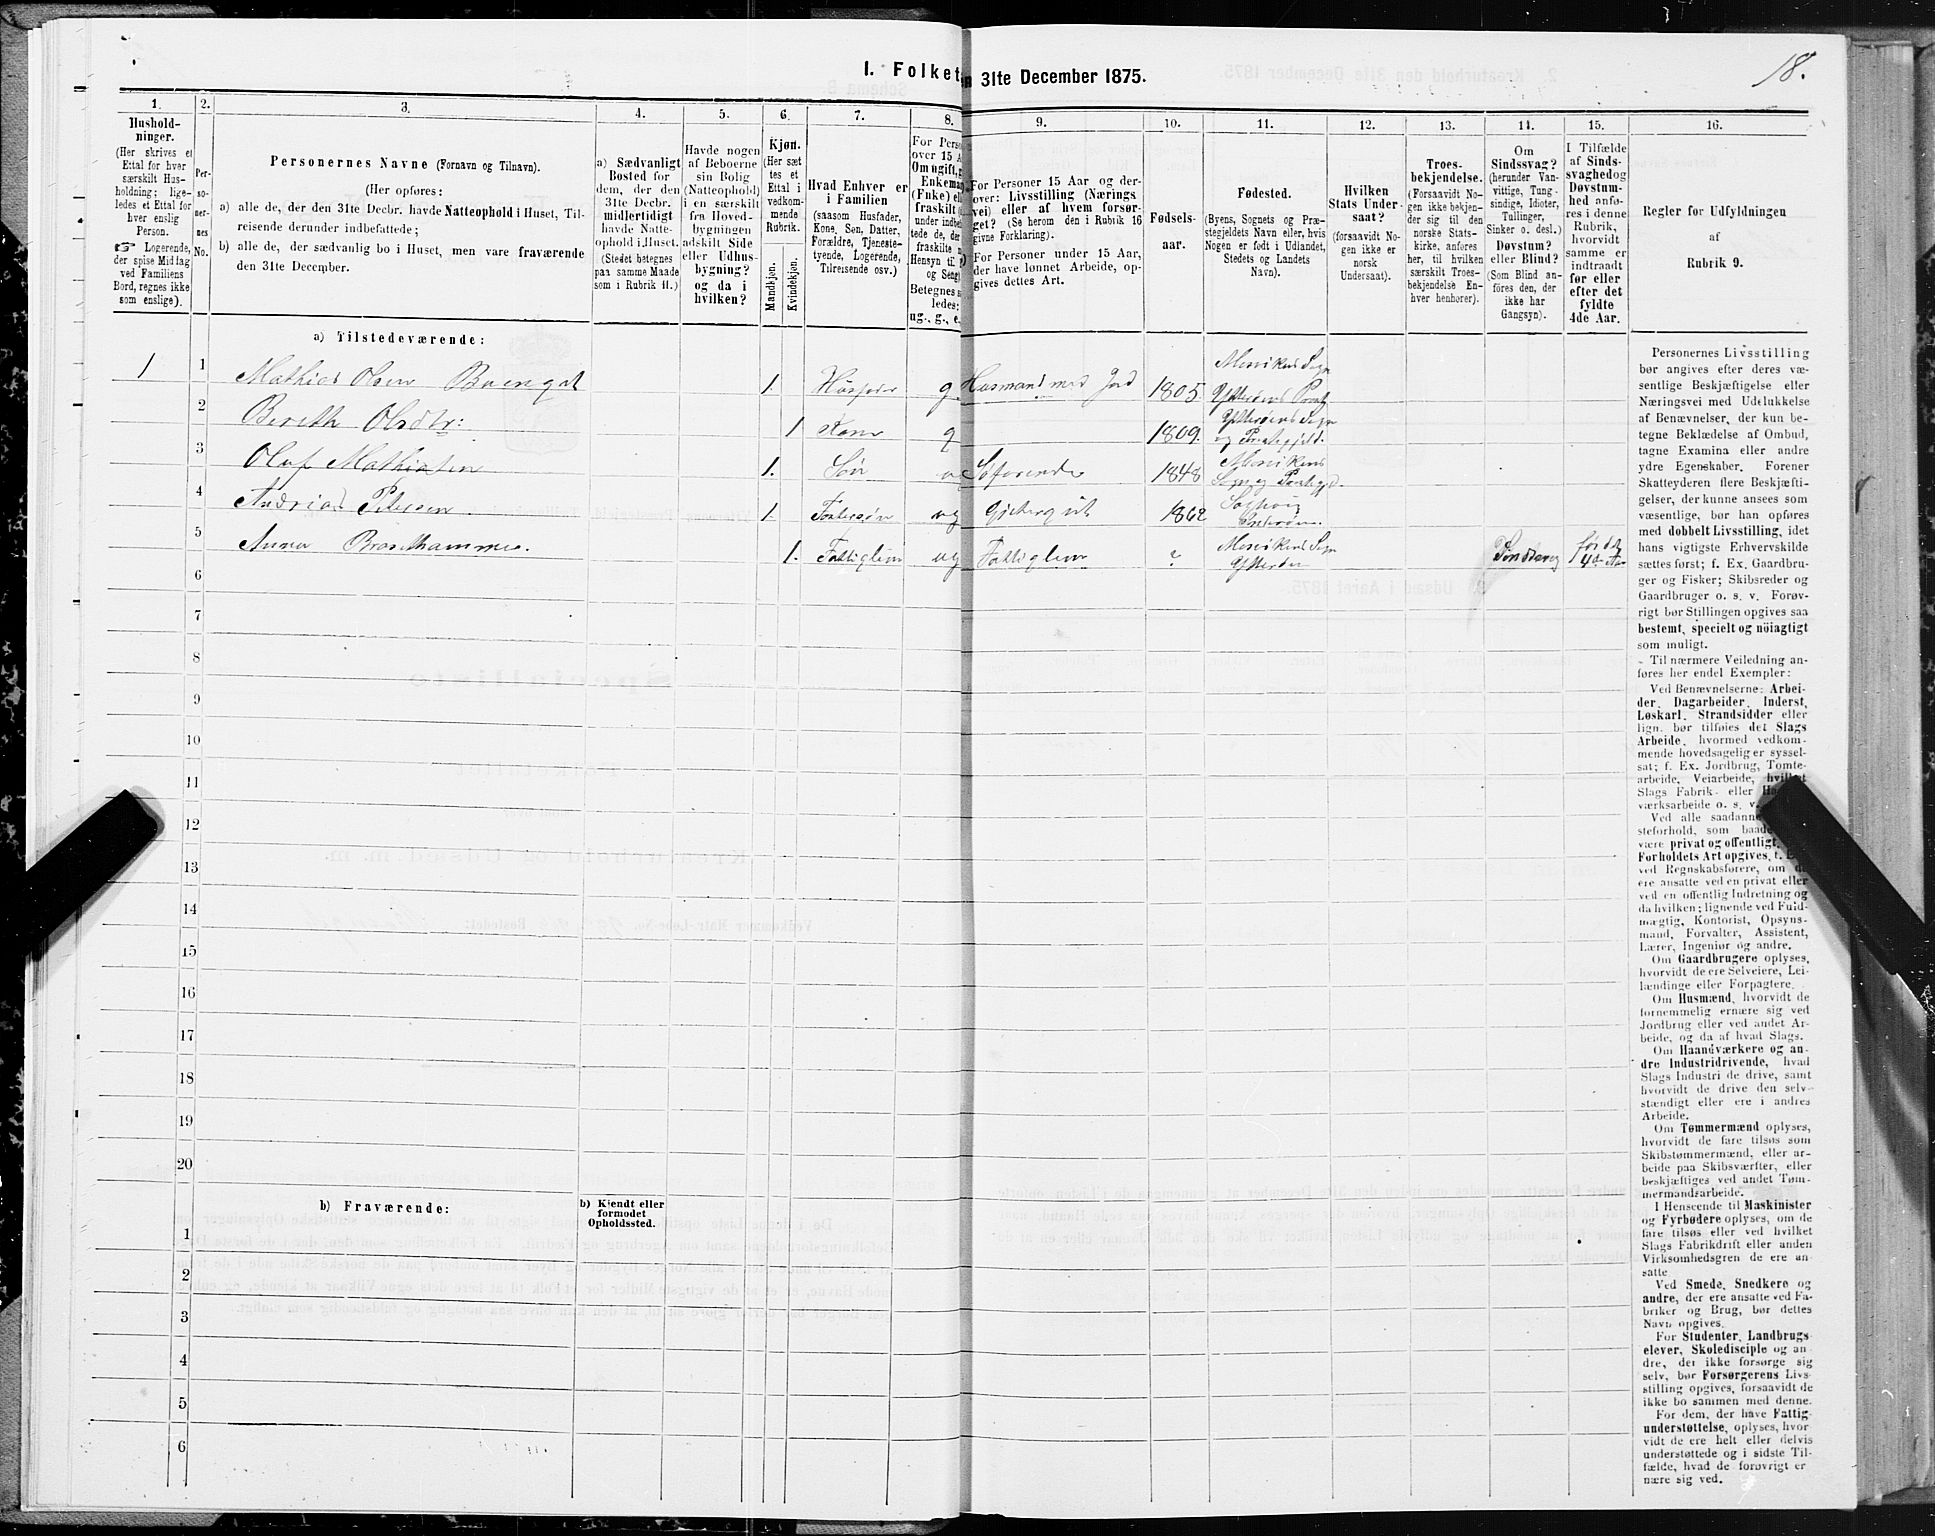 18.
I. Folket
n 31te December 1875.
1. 2. 3. 4. 5. 6. 7. 8. 9. 10. 11. 12. 13. 14. 15. 16.
Hushold-
ninger.
(Her skrives et
Ettal for hver
særskilt Hus-
holdning; lige-
ledes et Ettal for
hver enslig
Person.
☞ Logerende,
der spise Middag
ved Familiens
Bord, regnes ikke
som enslige).
Per-
so-
ner-
nes
No.
Personernes Navne (Fornavn og Tilnavn).
(Her opføres:
a) alle de, der den 31te Decbr. havde Natteophold i Huset, Til-
reisende derunder indbefattede;
b) alle de, der sædvanlig bo i Huset, men vare fraværende
den 31te December.
a) Sædvanligt
Bosted for
dem, der den
31te Decbr.
midlertidigt
havde Natte-
ophold i Huset.
(Stedet betegnes
paa samme Maade
som i Rubrik 11.)
Havde nogen
af Beboerne
sin Bolig
(Natteophold)
i en særskilt
fra Hoved-
bygningen
adskilt Side
eller Udhus-
bygning?
og da i
hvilken?
Kjøn.
(Her sæt-
tes et
Ettal i
vedkom-
mende
Rubrik.
Mandkjøn.
Kvindekjøn.
Hvad Enhver er
i Familien
(saasom Husfader,
Kone, Søn, Datter,
Forældre, Tjeneste-
tyende, Logerende,
Tilreisende osv.)
For Perso
over 15 A
Om ugift, g
Enkeman
(Enke) el
fraskilt
under indbe
tede de, der
fraskilte
Hensyn til
og Seng
Betegnes s
ledes:
ug., g., e.
For Personer 15 Aar og der-
over: Livsstilling (Nærings
vei) eller af hvem forsør-
get? (Se herom den i Rubrik 16
givne Forklaring).
For Personer under 15 Aar,
der have lønnet Arbeide, op-
gives dettes Art.
Fødsels-
aar.
Fødested.
(Byens, Sognets og Præ-
stegjeldets Navn eller, hvis
Nogen er født i Udlandet,
Stedets og Landets
Navn).
Hvilken
Stats Under-
saat?
(forsaavidt No-
gen ikke er
norsk
Undersaat).
Troes-
bekjendelse.
(Forsaavidt No-
gen ikke bekjen-
der sig til den
norske Stats-
kirke, anføres
her, til hvilken
særskilt Troes-
bekjendelse En-
hver henhører).
Om
Sindssvag?
(herunder Van-
vittige, Tung-
sindige, Idioter,
Tullinger,
Sinker o. desl.)
Døvstum?
eller Blind?
(Som Blind an-
føres den, der
ikke har
Gangsyn).
I Tilfælde
af Sinds-
svaghed og
Døvstum-
hed anfø-
res i denne
Rubrik,
hvorvidt
samme er
indtraadt
før eller
efter det
fyldte
4de Aar.
Regler før Udfyldningen
af
Rubrik 9.
a) Tilstedeværende:
1 1 Mathias Olsen 1. Husfader g Husmand med Jord 1805. Mosvikens Sogn Ytterøens Præstgj
2 Bereth Olsdtr: 1 Kone g 1809. Ytterøens Sogn og Præstegjeld.
3 Oluf Mathiasen 1. Søn Søfarende 1848 Mosvikens Sogn og Præstegj.
4 Andrias Petersen 1. Fostersøn ug Gjetergut 1862
5 Anna 1. Fattiglem ug Fattiglem ? Mosvikens Sogn Ytterøen Sindssvag før det 4de Aar
6
7
8
9
10
11
12
13
14
15
16
17
18
19
20
b) Fraværende:
b) Kjendt eller
formodet
Opholdssted.
1
2
3
4
5
6
Personernes Livsstilling
bør angives efter deres væ-
sentlige Beskjæftigelse eller
Næringsvei med Udelukkelse
af Benævnelser, der kun be-
tegne Beklædelse af Ombud,
tagne Examina eller andre
ydre Egenskaber. Forener
Skatteyderen flere Beskjæfti-
gelser, der kunne ansees som
væsentlige, bør han opføres
med dobbelt Livsstilling, idet
hans vigtigste Erhvervskilde
sættes først; f. Ex. Gaardbru-
ger og Fisker; Skibsreder og
Gaardbruger o. s. v. Forøv-
rigt bør Stillingen opgives saa
bestemt, specielt og nöiagtigt
som muligt.
Til nærmere Veiledning an-
føres her endel Exempler:
Ved Benævnelserne: Arbei-
der, Dagarbeider, Inderst,
Løskarl, Strandsidder eller
lign. bør tilføies det Slags
Arbeide, hvormed vedkom-
mende hovedsagelig er syssel-
sat; f. Ex. Jordbrug, Tomte-
arbeide, Veiarbeide, hvilket
Slags Fabrik- eller Ha
værksarbeide o. s. v.
Ved alle saadanne
steforhold, som baade
være privat og offentligt,
Forholdets Art opgives, f. E
ved Regnskabsførere, om d
ere ansatte ved en privat eller
ved en offentlig Indretning og
da hvilken; lignende ved Fuld-
mægtig, Kontorist, Opsyns-
mand, Forvalter, Assistent,
Lærer, Ingeniør og andre.
Om Gaardbrugere oplyses,
hvorvidt de ere Selveiere, Lei-
lændinge eller Forpagtere.
Om Husmænd, hvorvidt de
fornemmelig ernære sig ved
Jordbrug eller ved andet Ar-
beide, og da af hvad Slags.
Om Haandværkere og an-
dre Industridrivende, hvad
Slags Industri de drive, samt
hvorvidt de drive den selv-
stændigt eller ere i andres
Arbeide.
Om Tømmermænd oplyses,
hvorvidt de fare tilsøs som
Skibstømmermænd, eller ar-
beide paa Skibsværfter, eller
beskjæftiges ved andet Tøm-
mermandsarbeide.
I Henseende til Maskinister
og Fyrbødere oplyses, om de
fare tilsøs eller ved hvilket
Slags Fabrikdrift eller anden
Virksomhedsgren de ere an-
satte.
Ved Smede, Snedkere og
andre, der ere ansatte ved Fa-
briker og Brug, bør dettes
Navn opgives.
For Studenter, Landbrugs-
elever, Skoledisciple og an-
dre, der ikke forsørge sig
selv, bør Forsørgerens Livs-
stilling opgives, forsaavidt de
ikke bo sammen med denne.
For dem, der have Fattig-
understøttelse, oplyses, hvor-
vidt de ere helt eller delvis
understøttede og i sidste Til-
fælde, hvad de forøvrigt er-
nære sig ved.